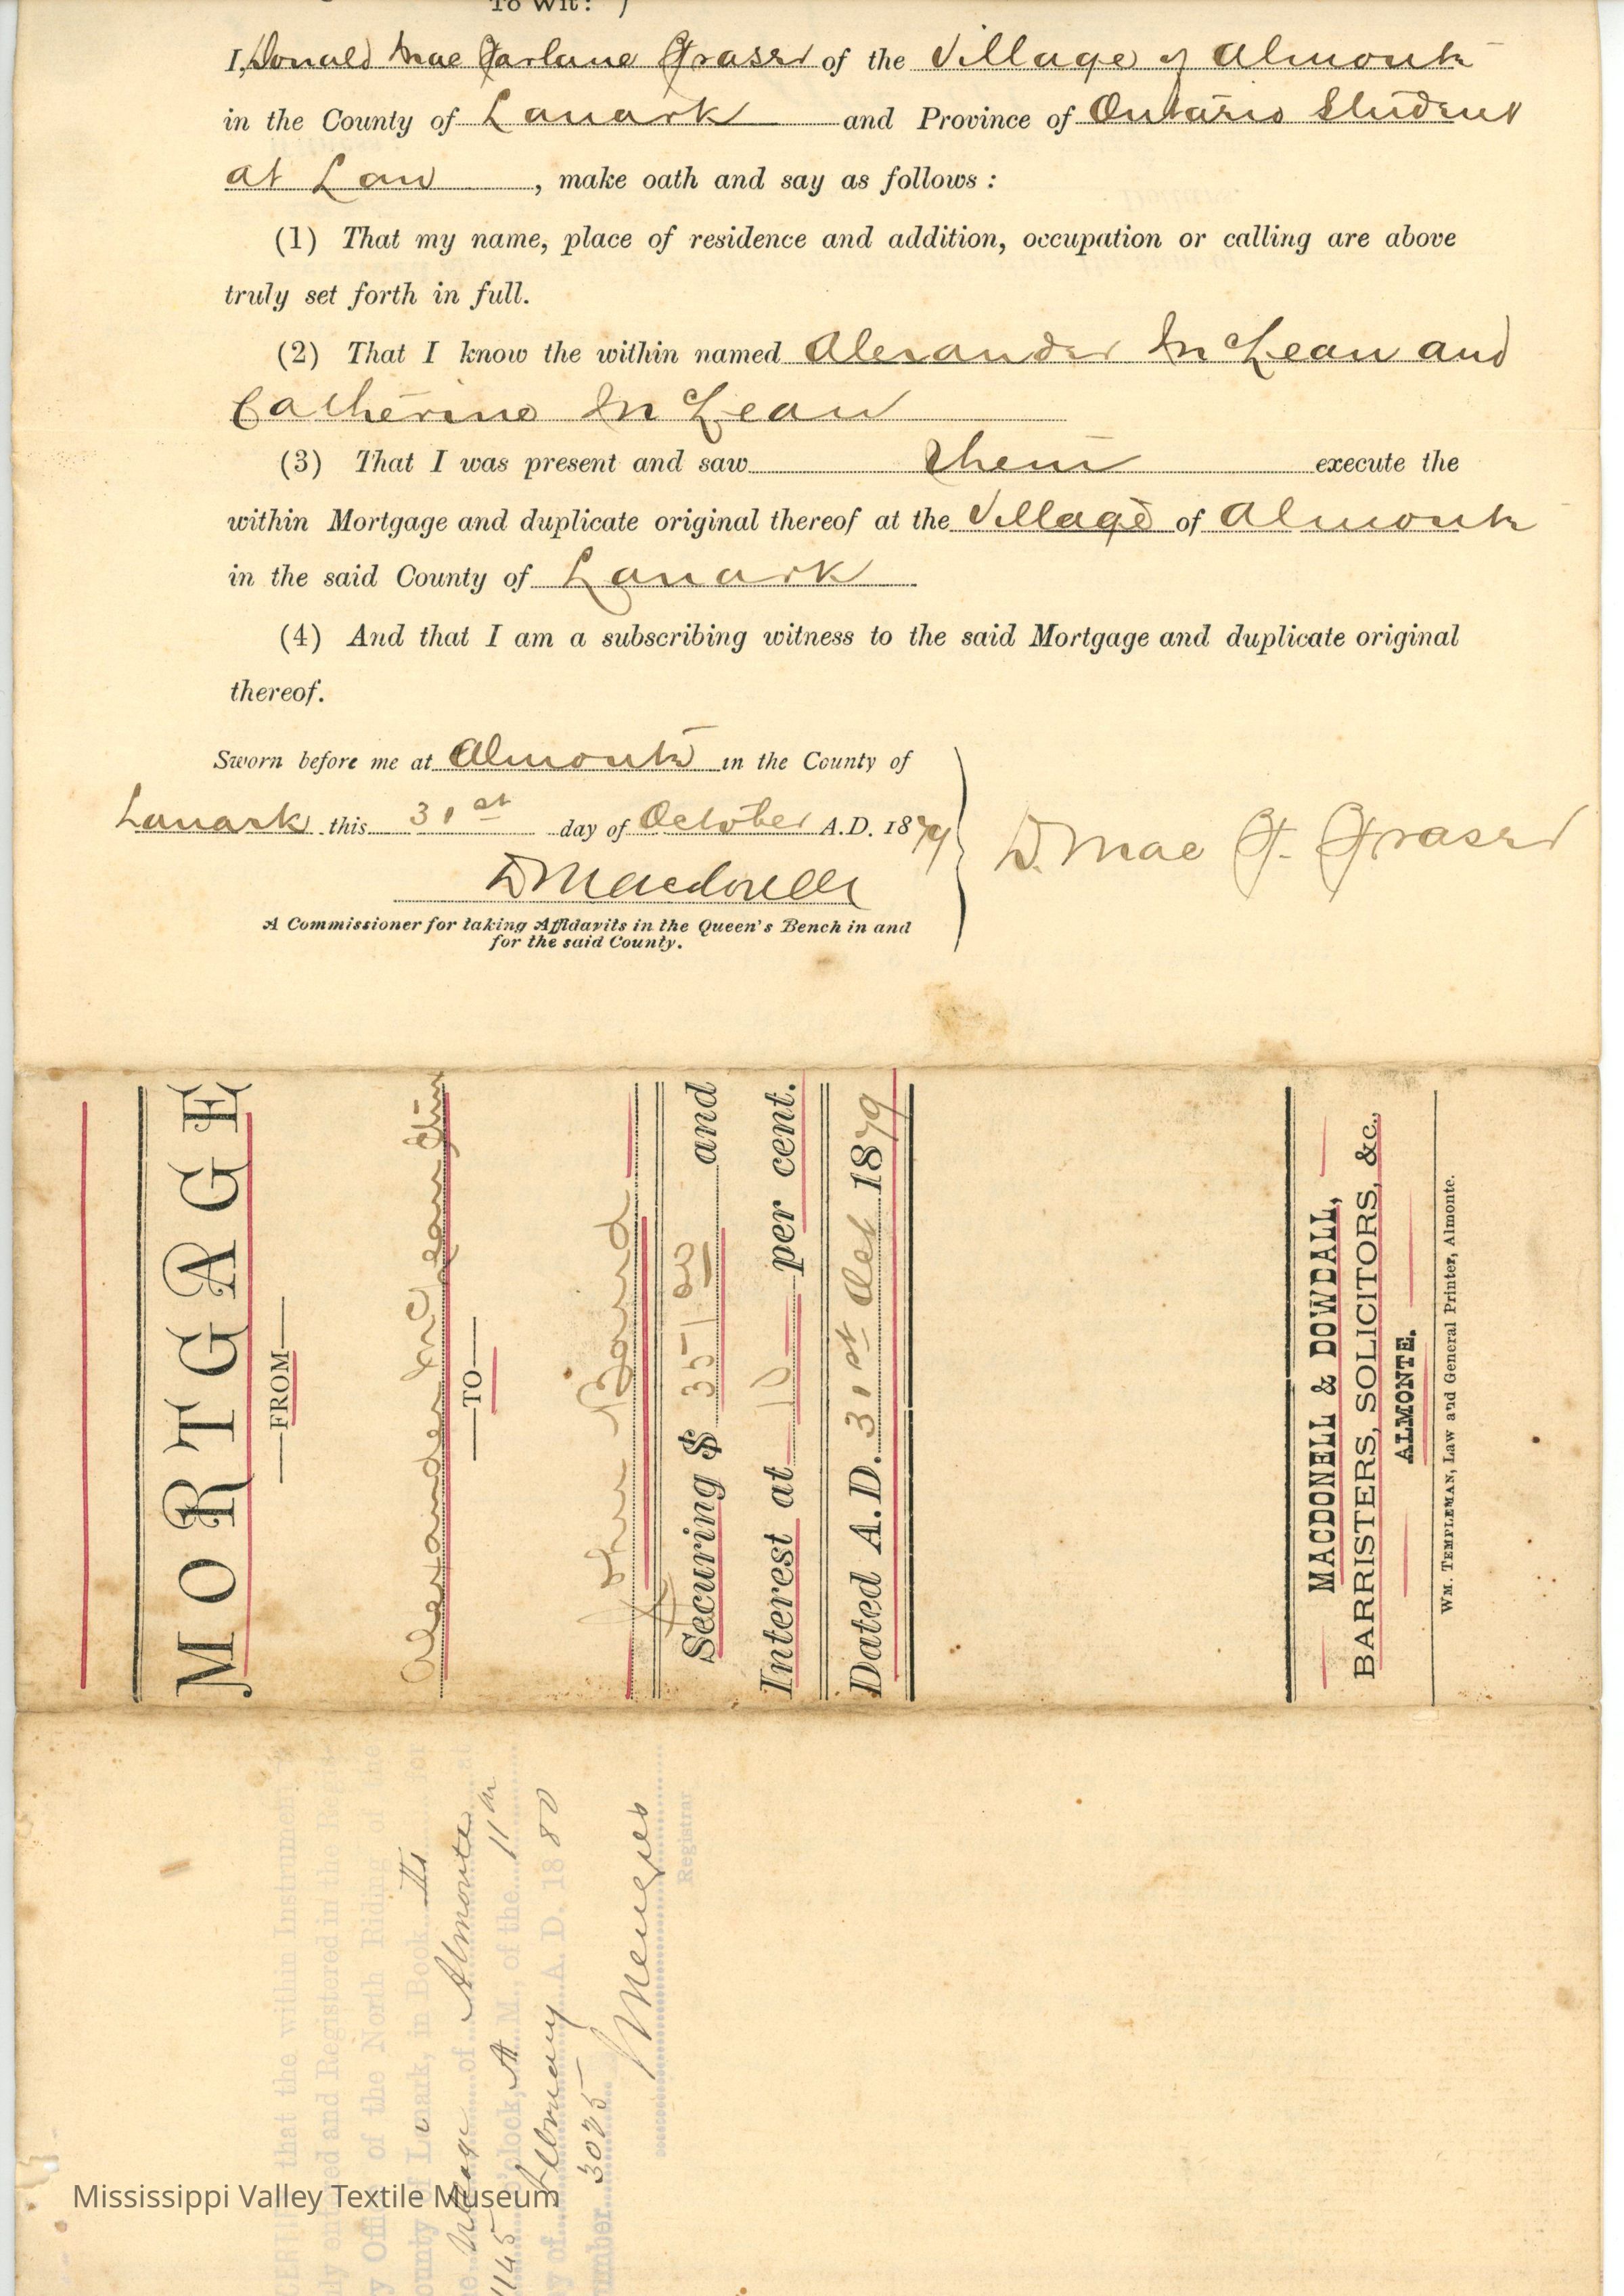 To Wit: )
I, Donald Mac Farlane Fraser of the Village of Almonte
in the County of Lanark and Province of Ontario Student
at Law, make oath and say as follows :
(1) That my name, place of residence and addition, occupation or calling are above
truly set forth in full.
(2) That I know the within named Alexander McLean and
Catherine McLean
(3) That I was present and saw them execute the
within Mortgage and duplicate original thereof at the Village of Almonte
in the said County of Lanark
(4) And that I am a subscribing witness to the said Mortgage and duplicate original
thereof.
Sworn before me at Almonte in the County of
Lanark this 31st day of October A.D. 1879
D Macdonell
D. Mac F. Fraser
A Commissioner for taking Affidavits in the Queen's Bench in and
for the said County.
MORTGAGE
FROM
Alexander McLean
TO
John Baird
Securing $ 351 and
Interest at 10 per cent.
Dated A.D. 31st Oct 1879
MACDONELL & DOWDALL,
BARRISTERS, SOLICITORS, &c.,
ALMONTE.
WM. TEMPLEMAN, Law and General Printer, Almonte.
that the within Instrument
entered and Registered in the
of the North Riding of the
Lanark, in Book for
Village of Almonte at
o'clock, A M., of the 11th
February A. D. 1880
3025
Menzies
Registrar
Mississippi Valley Textile Museum